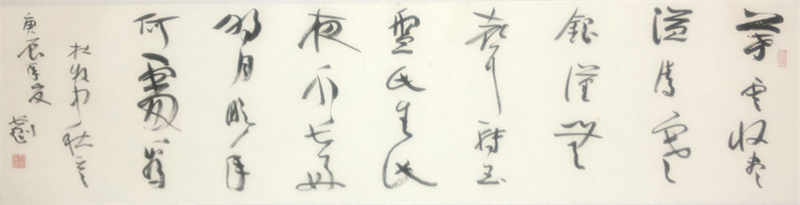 暮雲收盡
溢清寒
銀漢無
聲轉玉
盤此生此
夜不長好
明月明年
何處看
庚辰年夏